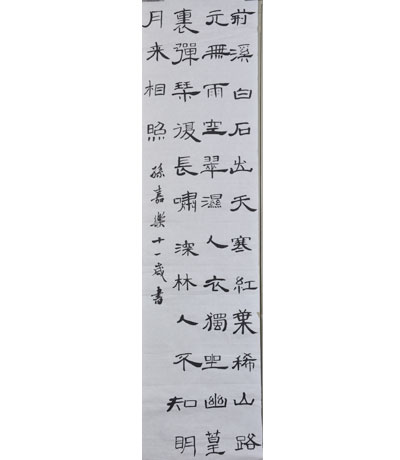 荊溪白石出天寒紅葉稀山路
元無雨空翠濕人衣獨坐幽篁
裏彈琴復長嘯深林人不知明
月来相照
孫嘉樂十一歲書